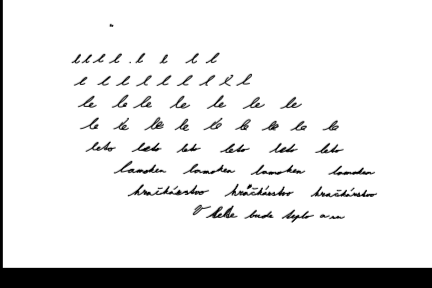 l l l l . l l l l
l l l l l l l l l
le le le le le le le
le le le le le le le le le
leto leto leto leto leto leto
lamohen lamohen lamohen lamohen
hračkárstvo hračkárstvo hračkárstvo
V lete bude teplo a